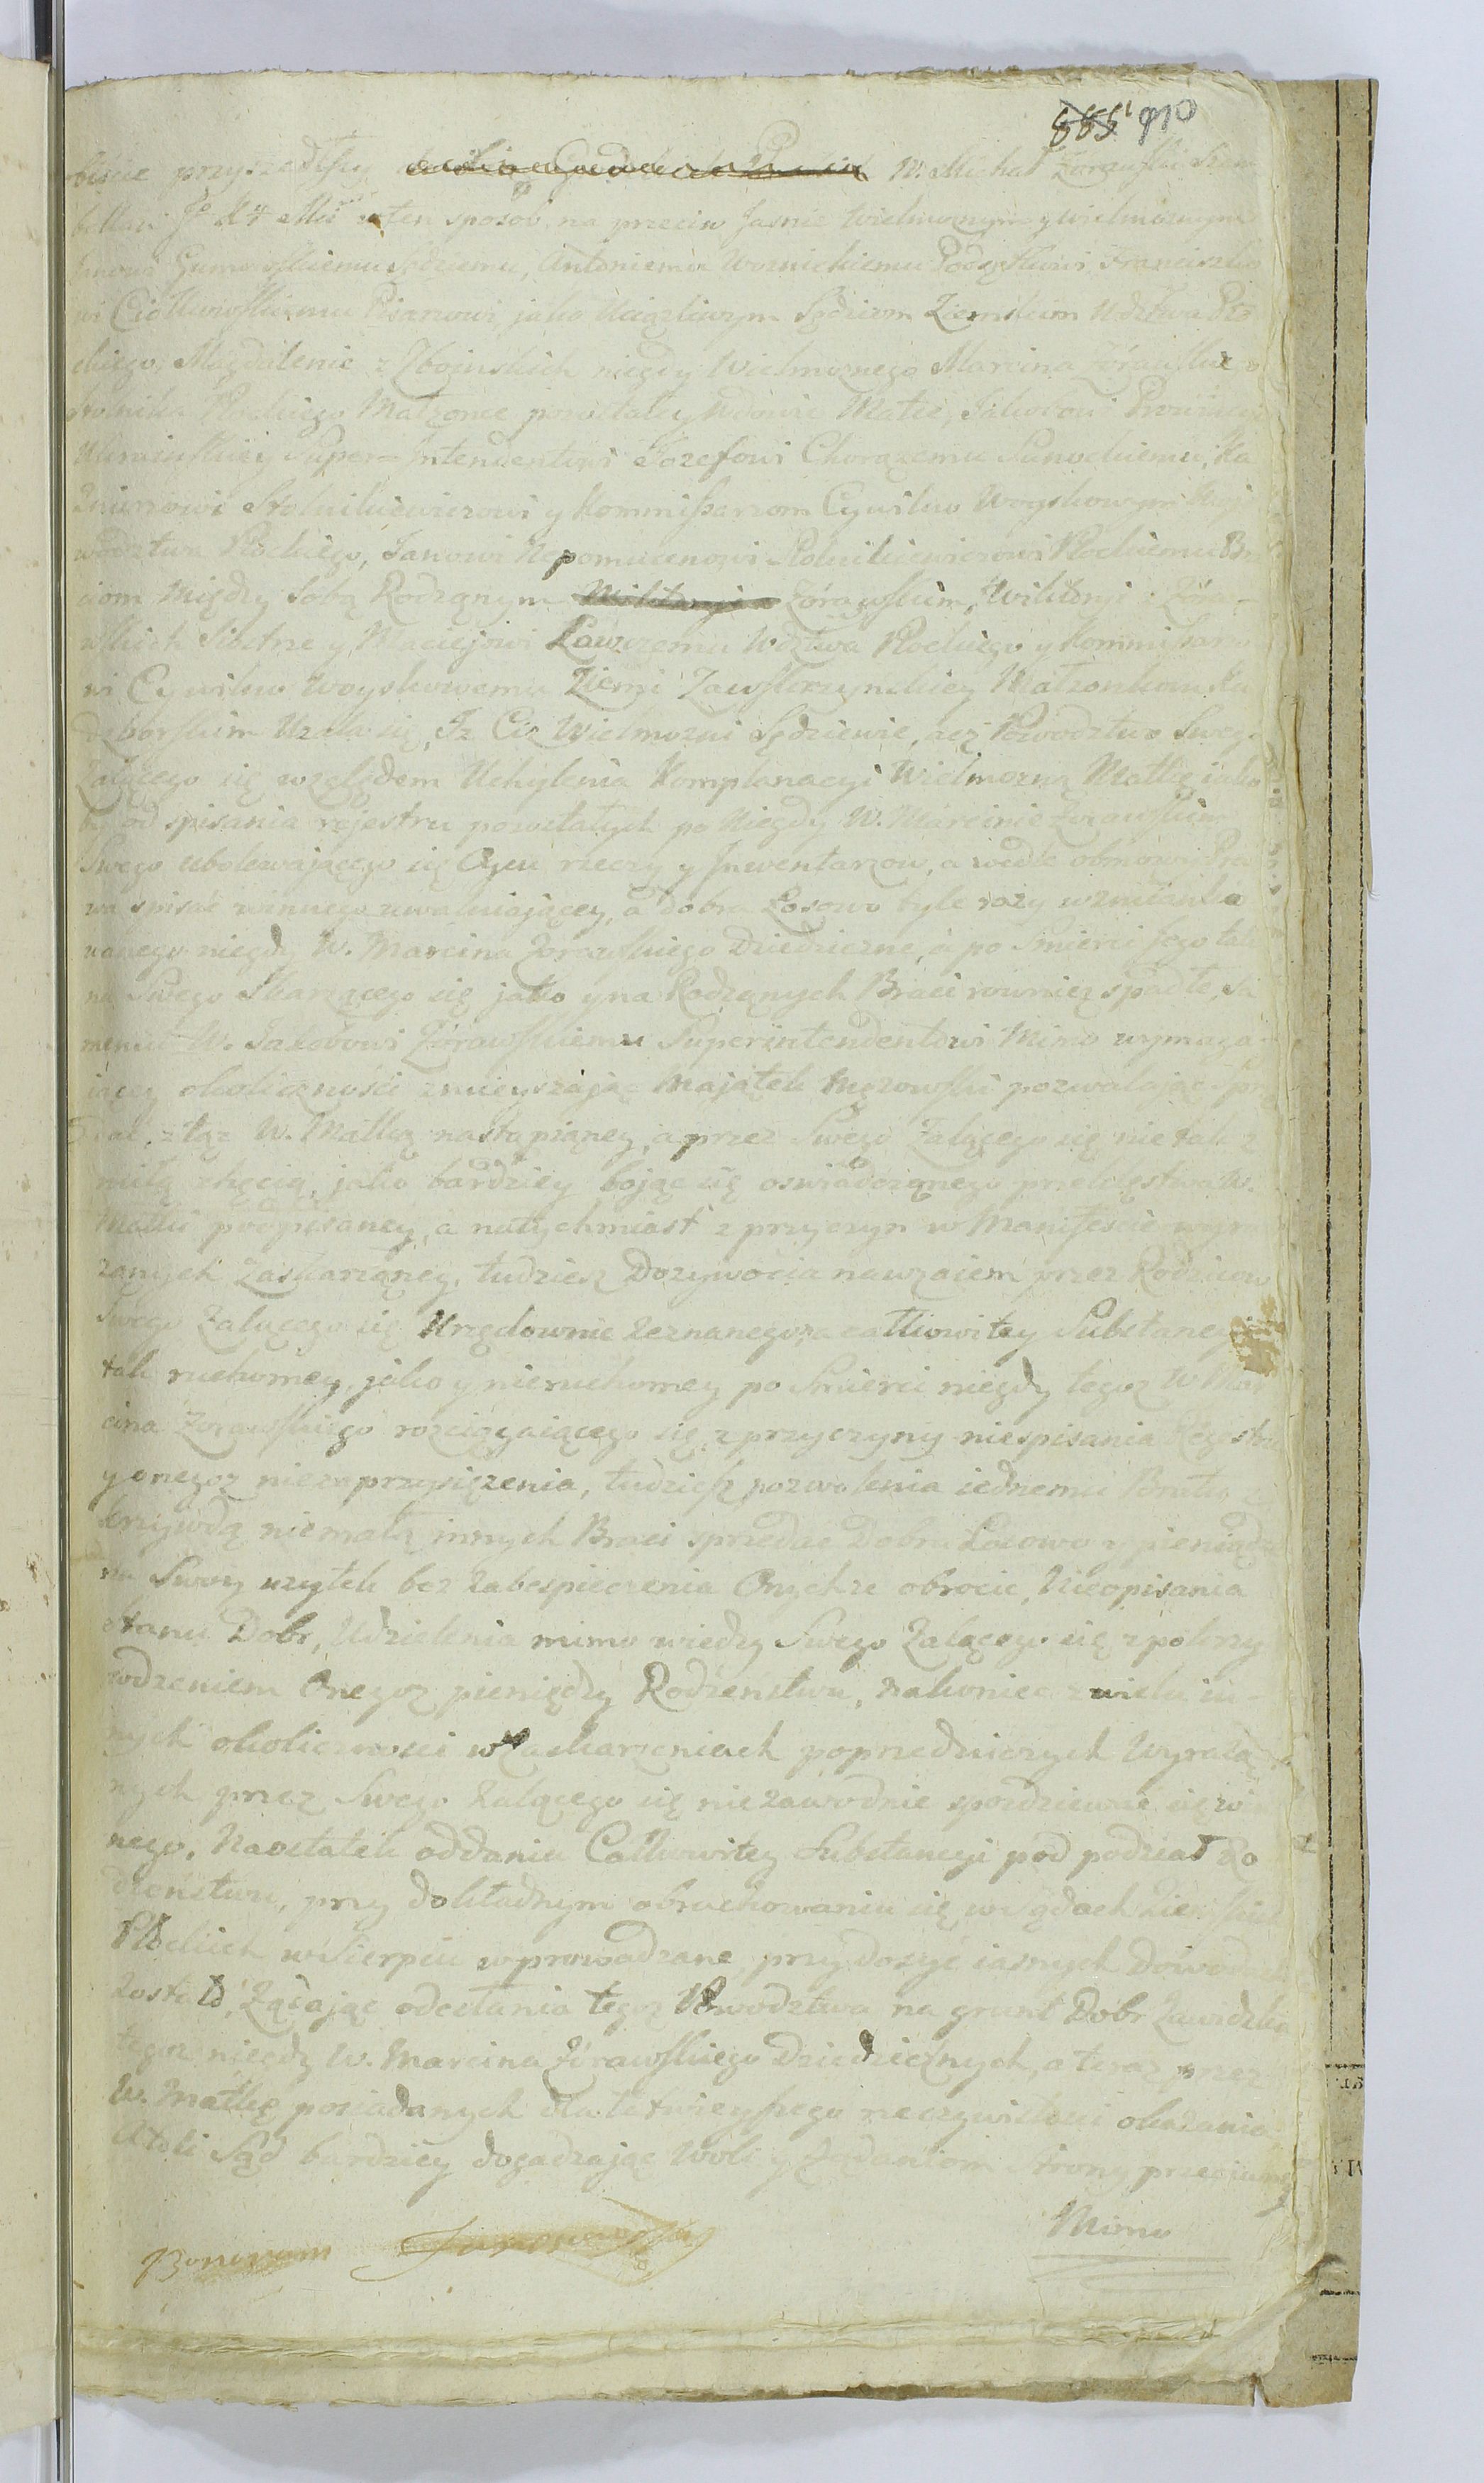 885 910
biście przyszedłszy W. Michał Zorawski Szam
bellan J° K° Mci w ten sposob, na przeciw Jasnie Wielmoznym y Wielmoznym
Sędziemu, Antoniemu Woznickiemu Podsędkowi, Franciszko
wi Ciołkowskiemu Pisarzowi, jako Uciązliwym Sędziom Ziemskim Wdztwa Pło
ckiego, Magdalenie z Zboinskich niegdy Wielmoznego Marcina Zorawskiego
stolnika Płockiego Małzonce pozostałey Wdowie Matce, Jakubowi Prowincyi
Ukrainskiey Super-Intendentowi Jozefowi Chorązemu Sanockiemu, Ka
zmirzowi Stolnikiewiczowi y Kommissarzom Cywilno Woyskowym Woje
wodztwa Płockiego, Janowi Nepomucenowi Stolnikiewiczowi Płockiemu Bra
ciom między sobą Rodzonym Zórawskim, Wiktoryi z Zóra-
wskich Siostrze y Maciejowi Łowczemu Wdztwa Płockiego y Kommissarzo
wi Cywilno Woyskowemu Ziemi Zawskrzynskiey Małzonkom Na
dzborskim Uzala się, Iz Ciz Wielmozni Sędziowie, acz Powodztwo Swego
Zalącego się względem Uchylenia Komplanacyi Wielmozną Matkę iako
by od spisania rejestru pozostałych po Niegdy W. Marcinie Zorawskim
Swego ubolewającego się Oycu rzeczy y Inwentarzow, a wedle obmowy Pra
wa spisać winnego uwalniającey, a dobra Łosowo tyle razy wzmianko
wanego niegdy W. Marcina Zorawskiego Dziedziczne, a po Smierci Jego tak
na Swego Skarzącego się jako y na Rodzonych Braci rownież spadłe, sa
memu W. Jakobowi Zórawskiemu Superintendentowi Mimo wymaga
iącey okoliczności zmieyszając Majątek pozwalając prze
dać, z tąz W. Matką nastąpioney, a przez Swego Zalącego się nie tak z
miłą chęcią, jako bardziey bojąc się oswiadczonego przeklęstwa W.
Matki podpisaney, a natychmiast z przyczyn w Manifeście wyra
zonych Zaskarzoney, tudziesz Dozywocia nawzaiem przez Rodzicow
Swego Zalącego się Urzędownie zeznanego, a całkowitey Substancyi
tak ruchomey, jako y nieruchomey po Smierci niegdy tegoz W Mar
cina Zorawskiego rozciągaiącego się z przyczyny niespisania Regestru
y onegoz niezaprzysięzenia, tudziesz pozwolenia iednemu Bratu z
krzywdą niemałą innych Braci sprzedac Dobra Łosowo y pieniądze
na Swoy uzytek bez zabespieczenia Onychze obrocic, Nieopisania
stanu Dobr, Udzielenia mimo wiedzy Swego Zalącego się z pokrzy
wdzeniem Onegoz pieniędzy Rodzenstwu, nakoniec z wielu in-
nych okoliczności w zaskarzeniach poprzedniczych Wyrazo
nych przez Swego Zalącego się niezawodnie spodziewac się wi
nego, Naostatek oddaniu Całkowitey Substancyi pod podział Ro
dzenstwu, przy dokładnym obrachowaniu się w sądach Ziemskich
Płockich w Sierpcu wprowadzone przy dosyć iasnych Dowodach
zostało, Ządając odesłania tegoz Powodztwa na grunt Dobr Zawidzkie
tegoz niegdy W. Marcina Zórawskiego Dziedzicznych, a teraz przez
W. Matkę posiadanych dla łatwieyszego rzeczywistosci okazania
Atoli Sąd bardziey dogadzając Woli y Ządaniom Strony przeciwney
Mimo
Bonorum